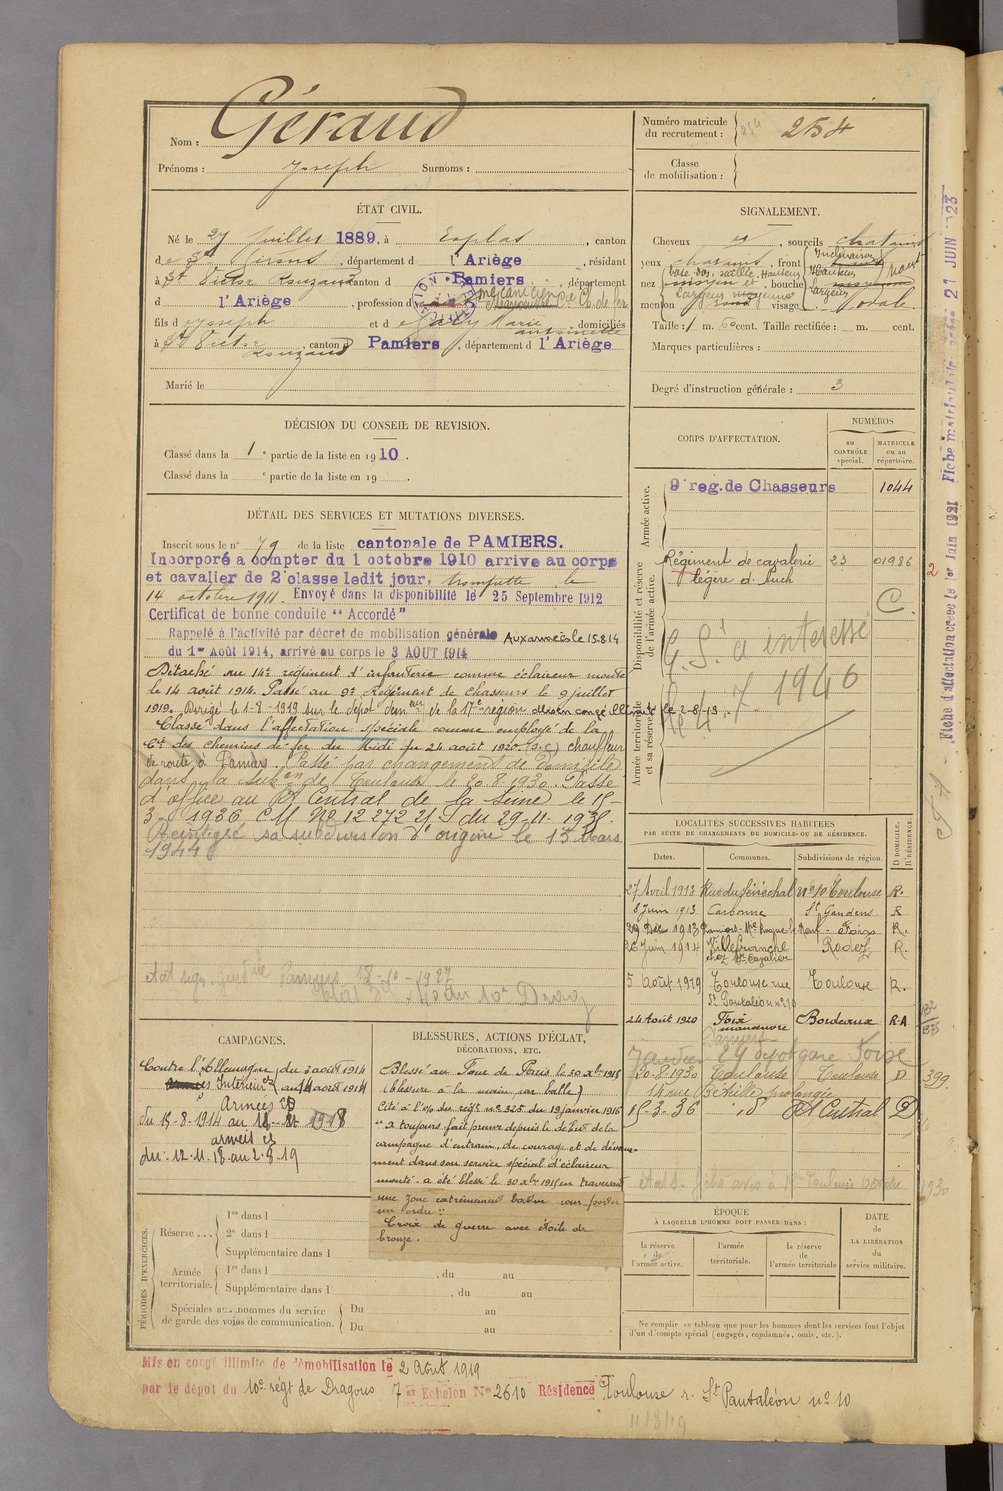 Nom : Géraud
Prénoms : Joseph Surnoms :
Numéro matricule du recrutement : 254
Classe de mobilisation :
ÉTAT CIVIL.
Né le 27 Juillet 1889, à Esplas, canton
de St Lizier, département d l'Ariège, résidant
à St Victor Rouzaud canton d Pamiers, département
d l'Ariège, profession d mécanicien Cie Ch. de fer
fils de Joseph et de Marie Antoinette, domiciliés
à St Victor Rouzaud, canton d Pamiers, département d l'Ariège
Marié le
SIGNALEMENT.
Cheveux , sourcils chatains
yeux chatains, front Inclinaison
Hauteur
largeur
nez base dos. saillie. Hauteur moyen , bouche
Largeur moyenne
menton rond visage ovale
Taille : 1 m. 60 cent. Taille rectifiée : m. cent.
Marques particulières :
Degré d'instruction générale : 3
DÉCISION DU CONSEIL DE REVISION.
Classé dans la 1e partie de la liste en 1910.
Classé dans la e partie de la liste en 19 .
CORPS D'AFFECTATION.
NUMÉROS
au CONTRÔLE spécial.
MATRICULE ou au répertoire.
Armée active.
9e reg. de Chasseurs 1044
Disponibilité et réserve de l'armée active.
Régiment de cavalerie 23 01986
légère d'Auch
C.
G.S.1 a interessé
le 4.7.1946
Armée territoriale et sa réserve.
DÉTAIL DES SERVICES ET MUTATIONS DIVERSES.
Inscrit sous le n° 79 de la liste cantonale de PAMIERS.
Incorporé à compter du 1 octobre 1910 arrivé au corps
et cavalier de 2e classe ledit jour, trompette le
14 octobre 1911. Envoyé dans la disponibilité le 25 Septembre 1912
Certificat de bonne conduite "Accordé"
Rappelé à l'activité par décret de mobilisation générale Aux armées le 15.8.14
du 1er Août 1914, arrivé au corps le 3 AOUT 1914
Détaché au 14e régiment d'infanterie comme éclaireur monté
le 14 août 1914. Passé au 9e Régiment de chasseurs le 9 juillet
1919. Dirigé le 1-8-1919 sur le dépôt dém eur de la 17e région en congé illimité le 2-8-19.
Classé dans l'affectation spéciale comme employé de la
Cie des chemins de fer du Midi du 24 août 1920. (S.C.) chauffeur
de route à Pamiers. Passé par changement de domicile
dans la subon de Toulouse le 20.8.1930. Passé
d'office au Rt Central de la Seine le 15-
3-1936 CM No 12272 du 29-11-1935.
Réintégré sa subdivision d'origine le 15 Mars
1944
LOCALITÉS SUCCESSIVES HABITÉES
PAR SUITE DE CHANGEMENTS DE DOMICILE OU DE RÉSIDENCE.
Dates. Communes. Subdivisions de région. D DOMICILE. R RÉSIDENCE.
27 Avril 1913 Rue du Sénéchal no 10 Toulouse R.
8 Juin 1913 Carbonne St Gaudens R
29 Déc 1913 Pamiers Foix R.
26 Juin 1914 Villefranche Rodez R.
chez Mr Cavalier
5 août 1919 Toulouse rue Toulouse R.
St Pantaléon no 10
24 Août 1920 Foix Bordeaux R.A
manœuvre
20.8.1930 Toulouse Toulouse D
15-3-36 id Rt Central D
399
1930
CAMPAGNES.
Contre l'Allemagne du 3 août 1914
Intérieur au 14 août 1914
Armées
du 15-8-1914 au 11-11-1918
armées
du 12.11.18 au 2.8.19
BLESSURES, ACTIONS D'ÉCLAT,
DÉCORATIONS, ETC.
Blessé au Four de Paris le 30 Xbre 1915
(blessure à la main par balle)
Cité à l'o/ du régt no 325 du 19 janvier 1916
"a toujours fait preuve depuis le début de la
campagne d'entrain, de courage et de dévoue-
ment dans son service spécial d'éclaireur
monté. a été blessé le 30 Xbre 1915 en traversant
une zone extrêmement battue pour porter
un ordre."
Croix de guerre avec étoile de
bronze.
PÉRIODES D'EXERCICES.
Réserve... 1re dans l
2e dans l
Supplémentaire dans l
Armée territoriale. 1re dans l , du au
Supplémentaire dans l , du au
Spéciales aux hommes du service de garde des voies de communication. Du au
Du au
ÉPOQUE
À LAQUELLE L'HOMME DOIT PASSER DANS :
la réserve de l'armée active.
l'armée territoriale.
la réserve de l'armée territoriale
DATE de LA LIBÉRATION du service militaire.
Ne remplir ce tableau que pour les hommes dont les services font l'objet
d'un d'compte spécial (engagés, condamnés, omis, etc.).
Mis en congé illimité de démobilisation le 2 Août 1919
par le dépôt du 10e régt de Dragons 7e Echelon No 2610 Résidence Toulouse r. St Pantaléon no 10
11/8/19